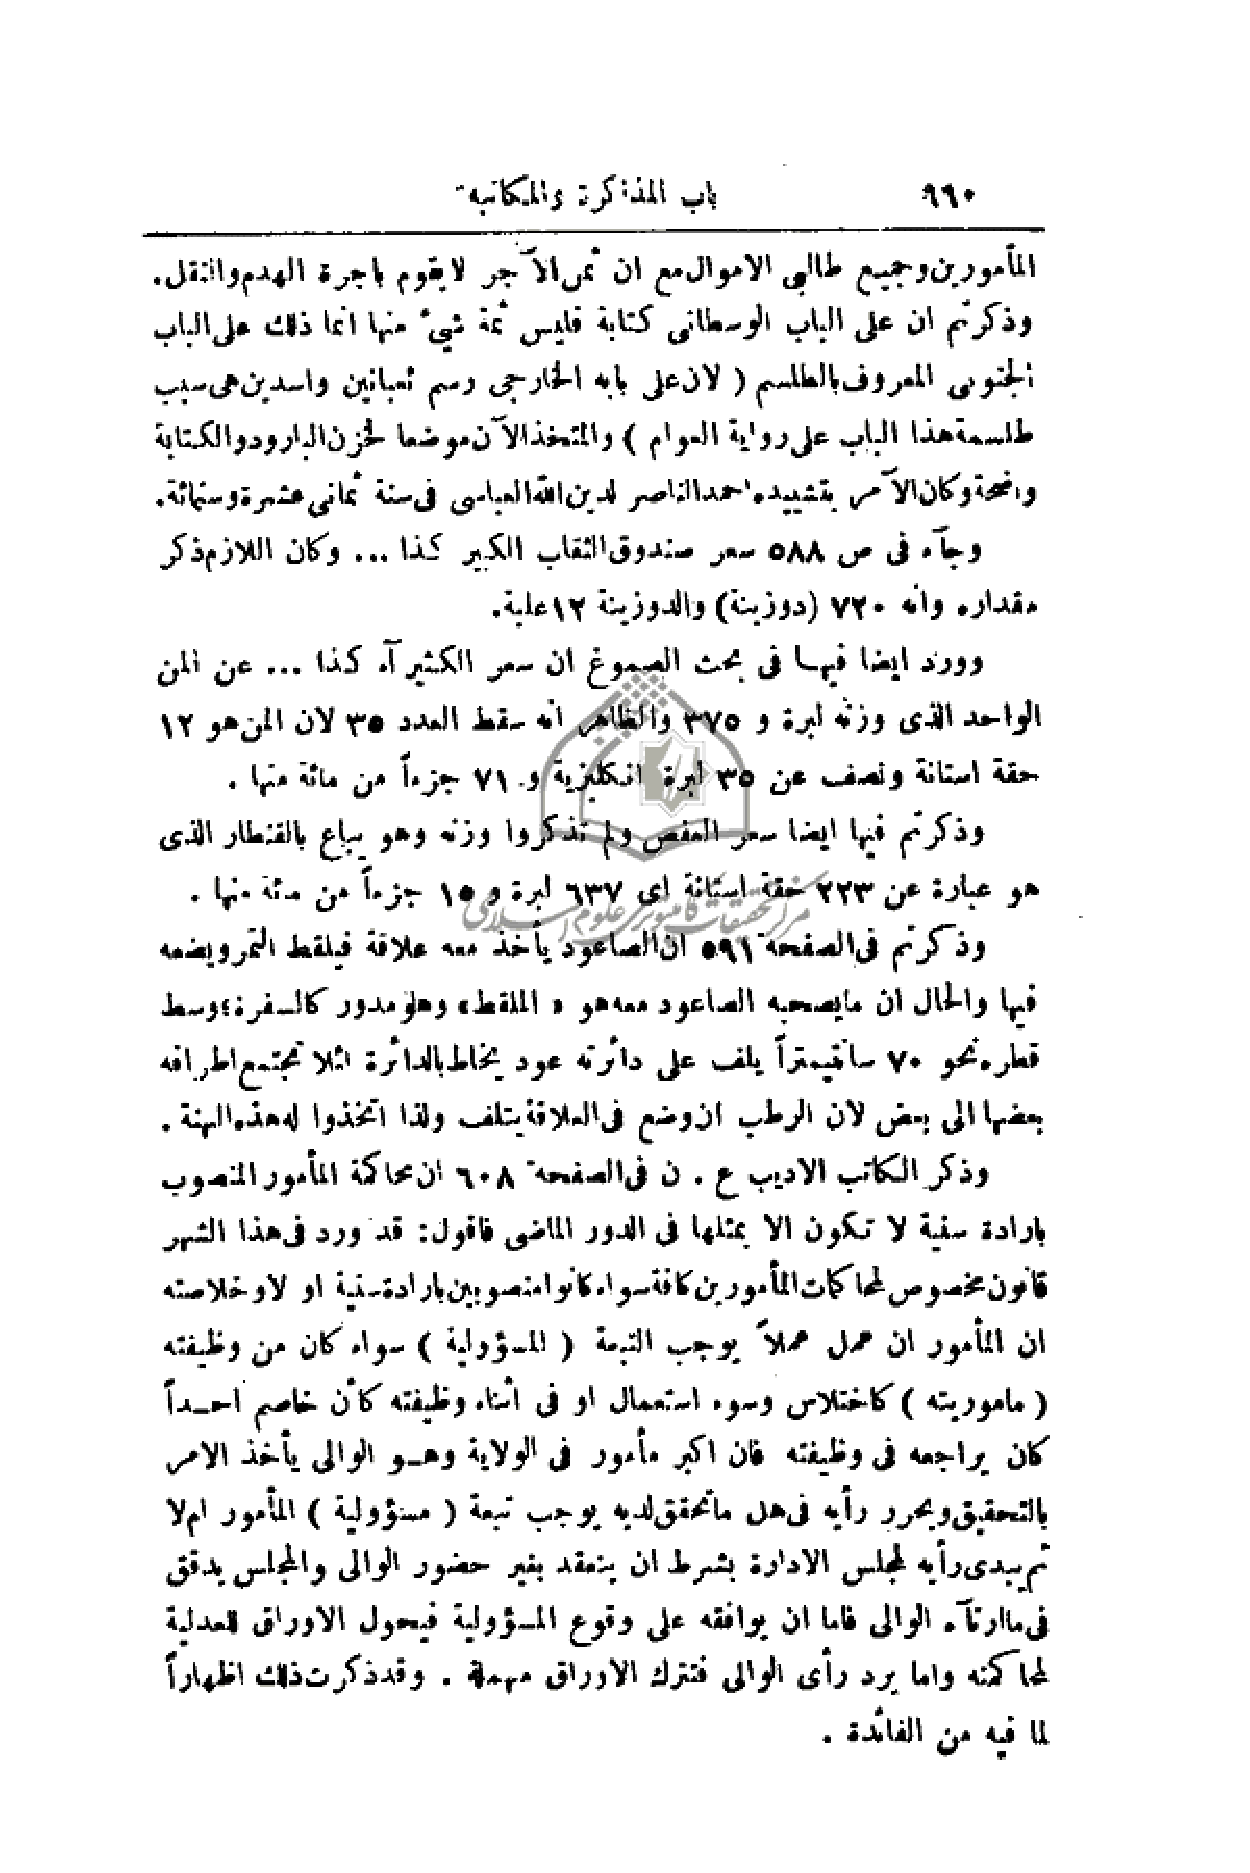 ٦٦٠ باب المذاكرة والمكاتبة
المأمورين وجميع طالبي الاموال مع ان ثمن الآجر لا يقوم باجرة الهدم والنقل.
وذكرتم ان على الباب الوسطاني كتابة فليس ثمة شيء منها انما ذلك على الباب
الجنوبي المعروف بالطلسم ( لان على بابه الخارجي رسم ثعبانين واسدين هي سبب
طلسمة هذا الباب على رواية العوام ) والمتخذ الآن موضعا لخزن البارود والكتابة
واضحة وكان الآمر بتشييده احمد الناصر لدين الله العباسي في سنة ثماني عشرة وستمائة.
وجآء في ص ٥٨٨ سعر صندوق الثقاب الكبير كذا ... وكان اللازم ذكر
مقداره وانه ٧٢٠ (دوزينة) والدوزينة ١٢ علبة.
وورد ايضا فيها في بحث الصموغ ان سعر الكثيرآء كذا ... عن المن
الواحد الذي وزنه لبرة و ٣٧٥ والظاهر انه سقط العدد ٣٥ لان المن هو ١٢
حقة استانة ونصف عن ٣٥ لبرة انكليزية و ٧١ جزءاً من مائة منها .
وذكرتم فيها ايضا سعر العفص ولم تذكروا وزنه وهو يباع بالقنطار الذي
هو عبارة عن ٢٢٣ حقة استانة اي ٦٣٧ لبرة و ١٥ جزءاً من مائة منها .
وذكرتم في الصفحة ٥٩١ ان الصاعود يأخذ معه علاقة فيلقط التمر ويضعه
فيها والحال ان ما يصحبه الصاعود معه هو « الملقط» وهو مدور كالسفرة؛ وسط
قطره نحو ٧٠ سانتيمتراً يلف على دائرته عود يخاط بالدائرة لئلا تجتمع اطرافه
بعضها الى بعض لان الرطب ان وضع في العلاقة يتلف ولذا اتخذوا له هذه الهنة .
وذكر الكاتب الاديب ع . ن في الصفحة ٦٠٨ ان محاكمة المأمور المنصوب
بارادة سنية لا تكون الا بمثلها في الدور الماضي فاقول: قد ورد في هذا الشهر
قانون مخصوص لمحاكمات المأمورين كافة سواء كانوا منصوبين بارادة سنية او لا وخلاصته
ان المأمور ان عمل عملاً يوجب التبعة ( المسؤولية ) سواء كان من وظيفته
( ماموريته ) كاختلاس وسوء استعمال او في اثناء وظيفته كأن خاصم احداً
كان يراجعه في وظيفته فان اكبر مأمور في الولاية وهو الوالي يأخذ الامر
بالتحقيق ويحرر رأيه في هل ما تحقق لديه يوجب تبعة ( مسؤولية ) المأمور ام لا
ثم يبدي رأيه لمجلس الادارة بشرط ان ينعقد بغير حضور الوالي والمجلس يدقق
في ما ارتآه الوالي فاما ان يوافقه على وقوع المسؤولية فيحول الاوراق للعدلية
لمحاكمته واما يرد رأي الوالي فتترك الاوراق مهملة . وقد ذكرت ذلك اظهاراً
لما فيه من الفائدة .
مركز تحقيقات كامپيوتري علوم اسلامي